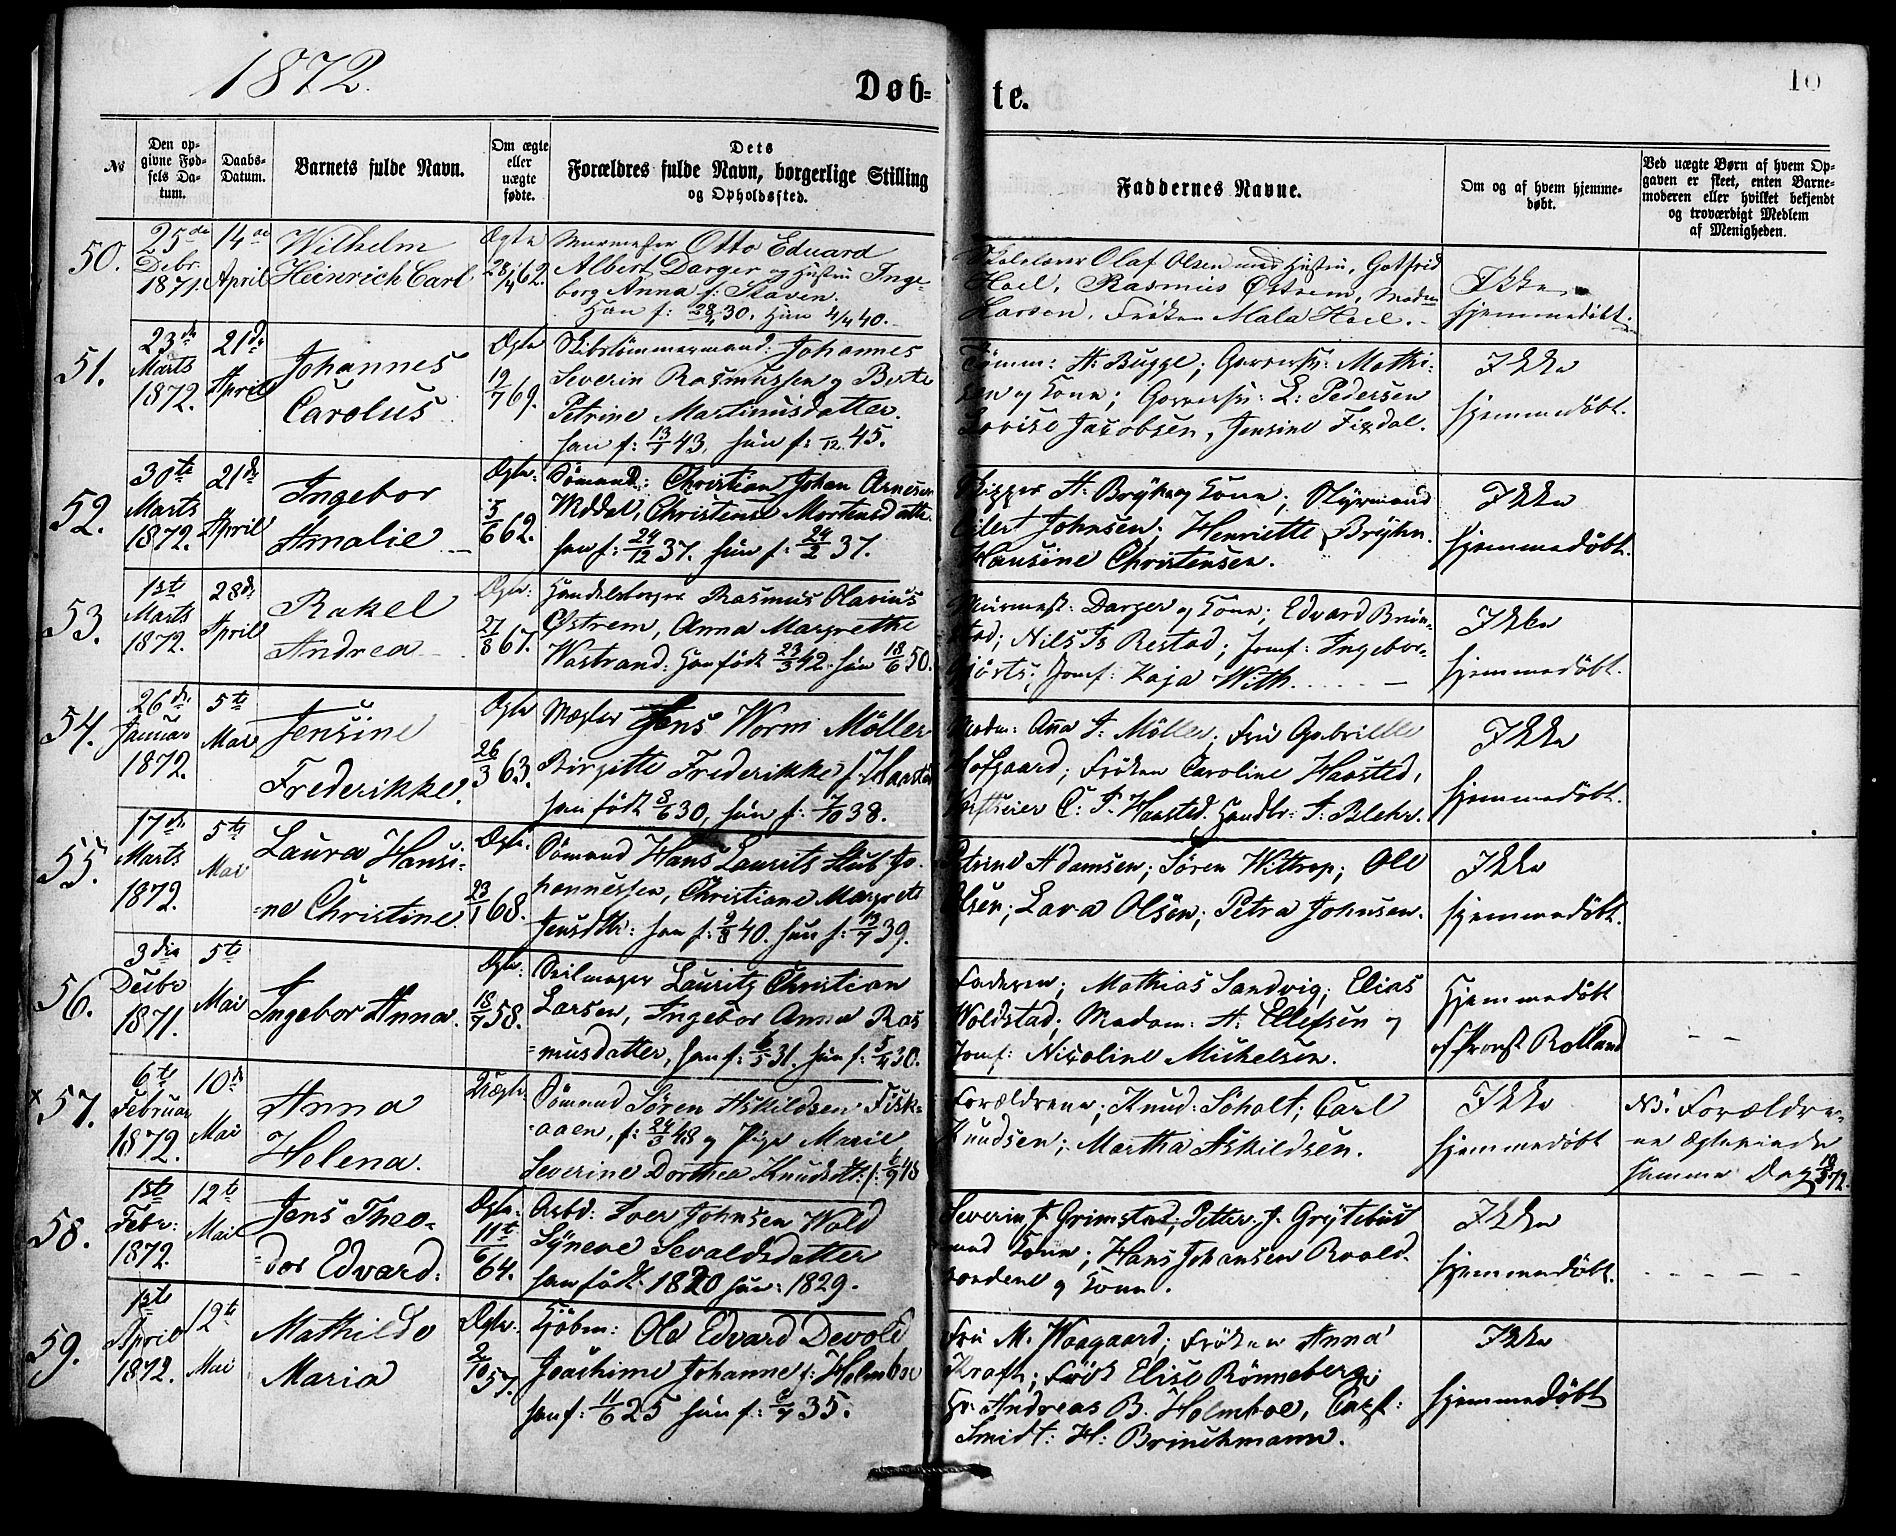 1872.
Døb=
te.
10
№
Den op-
givne Fød-
sels Da-
tum.
Daabs-
Datum.
Barnets fulde Navn.
Om ægte
eller
uægte
fødte.
Dets
Forældres fulde Navn, borgerlige Stilling
og Opholdssted.
Faddernes Navne.
Om og af hvem hjemme-
døbt.
Ved uægte Børn af hvem Op-
gaven er skeet, enten Barne-
moderen eller hvilket bekjendt
og troværdigt Medlem
af Menigheden.
50.
25de
Debr.
1871.
14de
April
Wilhelm
Heinrich Carl
Ægte
28/4 62.
Murmester Otto Eduard
Albert Darger og Hustru Inge-
borg Anna f: Staven.
Han f: 28/4 30, Hun 4/4 40.
Olaf Olsen med Hustru, Gotfried
Hoel, Rasmus Østrem, Madm
Larsen, Frøken Mala Hoel.
Ikke
hjemmedøbt.
51.
23de
Marts
1872.
21de
April
Johannes
Carolus
Ægte
19/7 69.
Skibstømmermand: Johannes
Severin Rasmussen og Berte
Petrine Martinusdatter.
han f: 13/1 43, hun f: /12 45.
Tømm: A: Bugge; Garversv: Mathi-
sen og Kone; Garversv: L: Pedersen
Lovise Jacobsen, Jensine Fixdal.
Ikke
hjemmedøbt.
52.
30te
Marts
1872.
21de
April
Ingebor
Amalie
Ægte:
5/6 62.
Sømand: Christian Johan Arnesen
Uddal, Christense Mortensdatter
han f: 29/12 37. hun f: 24/2 37.
Skipper A: Bryhn og Kone; Styrmand
Eilert Johnsen; Henriette Bryhn.
Hansine Christensen.
Ikke
hjemmedøbt.
53.
1ste
Marts
1872.
28de
April
Rakel
Andrea
Ægte:
27/8 67.
Handelsborger Rasmus Olavius
Østrem, Anna Margrethe
Wastrand: Han født 23/3 42. hun 18/6 50.
Murmest: Darger og Kone; Edvard Brun-
stad; Nils Is Restad; Jomf: Ingebor-
Hjorts; Jomf: Kaja With.
Ikke
hjemmedøbt.
54.
26de
Januar
1872.
5te
Mai
Jensine
Frederikke.
Ægte
26/3 63.
Mægler Jens Worm Möller
Birgitte Frederikke f: Haasted
han født 8/6 30, hun f: 7/10 38.
Madm: Anna F: Möller, Fru Gabrielle
Hofgaard; Frøken Caroline Haasted,
C: F: Haasted. Handbr: F: Blehr.
Ikke
hjemmedøbt.
55.
17de
Marts
1872.
5te
Mai
Laura Hansi-
=ne Christine.
Ægte.
23/1 68.
Sømand Hans Laurits Stub Jo-
hannessen, Christiane Margrete
Jensdtr: han f: 9/8 40. hun f: 13/7 39.
Petrine Adamsen; Søren Wittrop; Ole
Olsen; Lava Olsen; Petra Johnsen.
Ikke
hjemmedøbt.
56.
3die
Decbr
1871.
5te
Mai
Ingebor Anna.
Ægte:
18/7 58.
Seilmager Lauritz Christian
Larsen, Ingebor Anna Ras-
=musdatter, han f: 6/5 31. hun f: 5/4 30.
Faderen; Mathias Sandvig; Elias
Woldstad; Madam: A: Ellefsen og
Jomf: Nicoline Mickelsen.
Hjemmedøbt
af Provst Rolland
57.
6te
Februar
1872.
10de
Mai
Anna
Helena.
Uægte
Sømand Søren Askildsen Fisk-
=aaen, f: 24/3 48 og Pige Marie
Severine Dorthea Knudsdtr: f: 6/9 48
Forældrene; Knud Søholt; Carl
Knudsen; Martha Askildsen.
Ikke
hjemmedøbt
NB. Forældre-
ne Ægteviede
samme Dag 10/5 72.
58.
1ste
Febr:
1872.
12te
Mai
Jens Theo-
=dor Edvard.
Ægte.
11te
6/64.
Arbd: Iver Johnsen Wold
Synøve Sevaldsdatter
han født 1820 hun: 1829.
Severin J Grimstad; Petter J. Grytebust
med Kone; Hans Johansen Roald-
og Kone.
Ikke
hjemmedøbt.
59.
1ste
April
1872.
12te
Mai
Mathilde
Maria
Ægte.
2/10 57.
Kjøbm: Ole Edvard Devold
Joachime Johanne f: Holmboe
han f: 11/6 25 hun f: 6/7 35.
Fru M. Waagaard; Frøken Anna
Kraft; Frøk Elise Rönneberg;
Hr. Andreas B. Holmboe, Capt:
Smidt: H: Brinchmann.
Ikke
hjemmedøbt